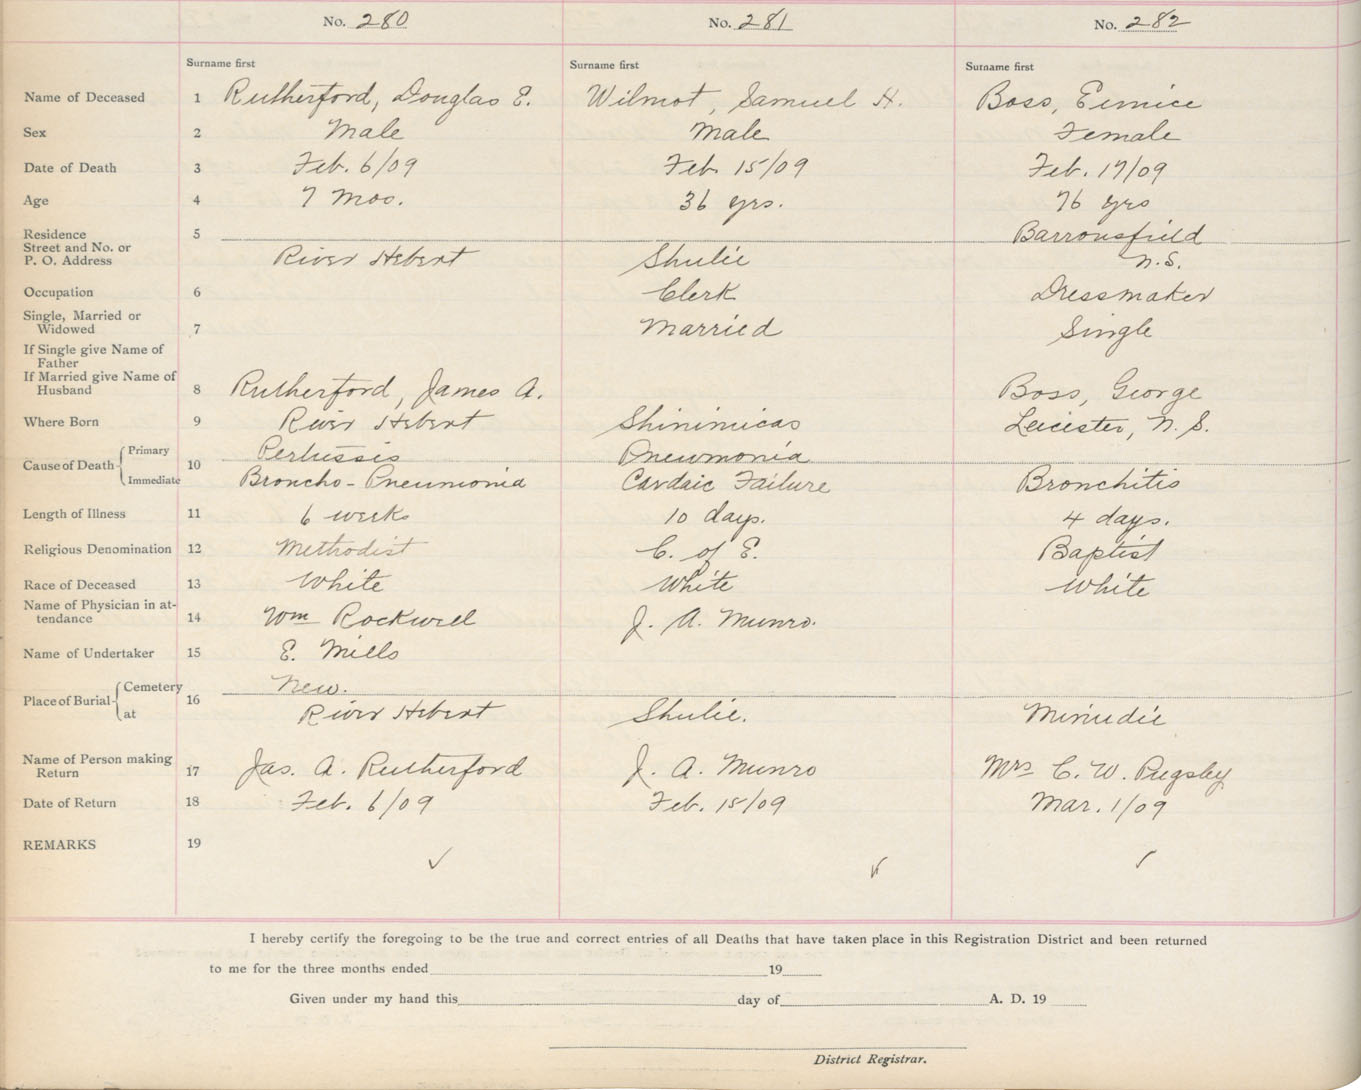 No. 280 No. 281 No. 282
Surname first Surname first Surname first
Name of Deceased 1 Rutherford, Douglas E. Wilmot, Samuel H. Boss, Eunice
Sex 2 Male Male Female
Date of Death 3 Feb. 6/09 Feb. 15/09 Feb. 17/09
Age 4 7 Mos. 36 yrs. 76 yrs
Residence 5 Barronsfield
Street and No. or
P. O. Address River Hebert Shulie N.S.
Occupation 6 Clerk Dressmaker
Single, Married or
Widowed 7 Married Single
If Single give Name of
Father
If Married give Name of
Husband 8 Rutherford, James A. Boss, George
Where Born 9 River Hebert Shinimicas Leicester, N. S.
Primary Pertussis Pneumonia
Cause of Death 10
Immediate Broncho-Pneumonia Cardaic Failure Bronchitis
Length of Illness 11 6 weeks 10 days. 4 days.
Religious Denomination 12 Methodist C. of E. Baptist
Race of Deceased 13 White White White
Name of Physician in at-
tendance 14 Wm Rockwell J. A. Munro.
Name of Undertaker 15 E. Mills
Cemetery New.
Place of Burial 16
at River Hebert Shulie. Minudie
Name of Person making
Return 17 Jas. A. Rutherford J. A. Munro Mrs C. W. Pugsley
Date of Return 18 Feb. 6/09 Feb. 15/09 Mar. 1/09
REMARKS 19
✓ ✓ ✓
I hereby certify the foregoing to be the true and correct entries of all Deaths that have taken place in this Registration District and been returned
to me for the three months ended 19
Given under my hand this day of A. D. 19
District Registrar.